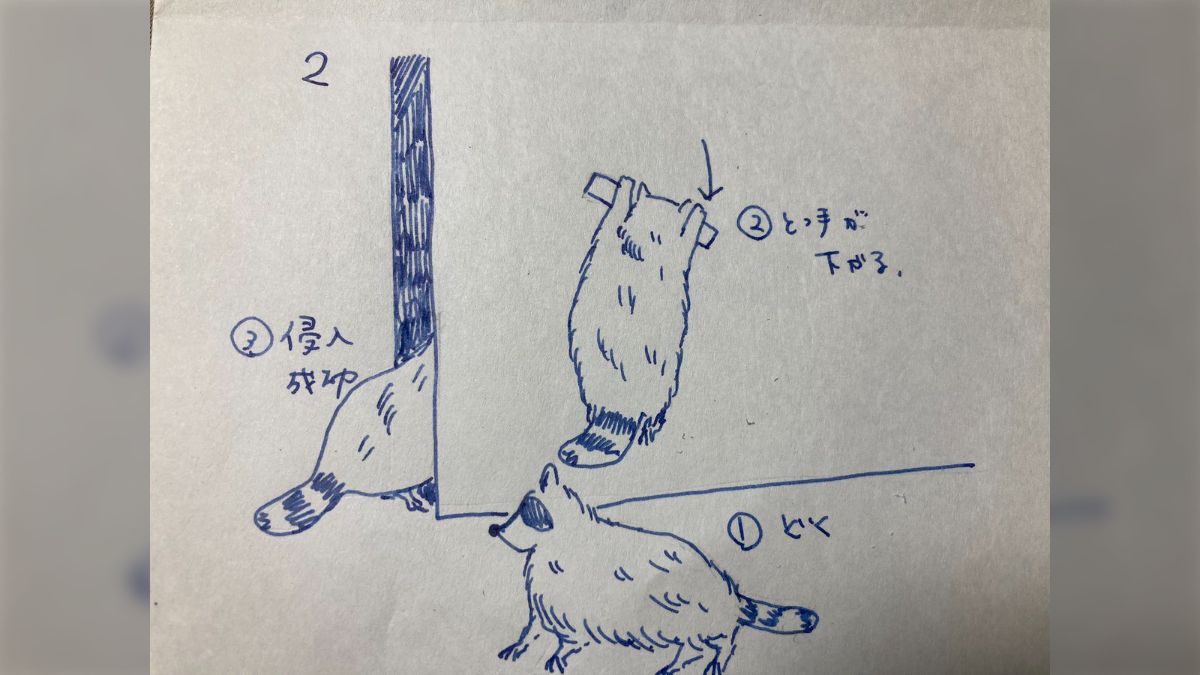 2
② とっ手が
下がる.
③ 侵入
成功
① どく